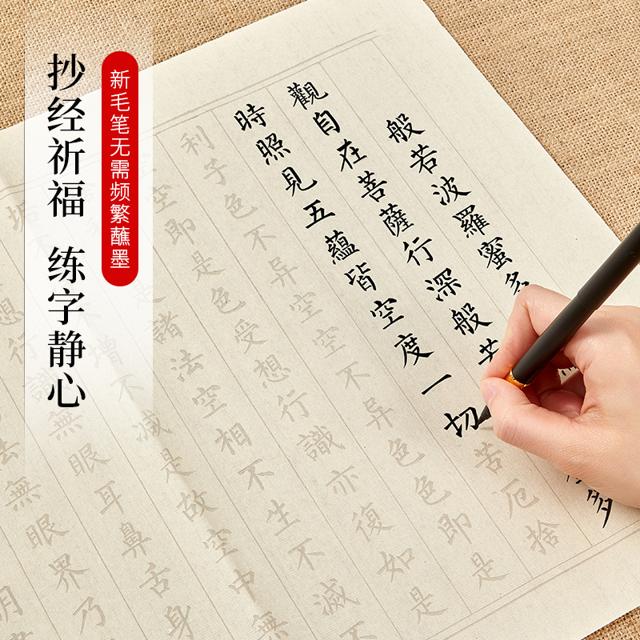 抄经祈福 练字静心
新毛笔无需频繁蘸墨
般若波羅蜜多
多
觀自在菩薩行深般若
時照見五蘊皆空度一切苦厄捨
利子色不异空空不异色色即是
空即是色受想行識亦復如是
諸法空相不生不滅
增不減是故空中無
無眼耳鼻舌身
無眼界乃